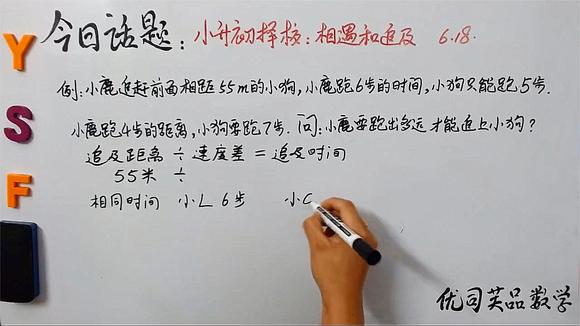 今日话题：小升初择校：相遇和追及 6.18.
Y
S
F
例：小鹿追赶前面相距55m的小狗，小鹿跑6步的时间，小狗只能跑5步.
小鹿跑4步的距离，小狗要跑7步.问：小鹿要跑出多远才能追上小狗？
追及距离 ÷ 速度差 = 追及时间
55米 ÷
相同时间 小L 6步 小G
优司芙品数学